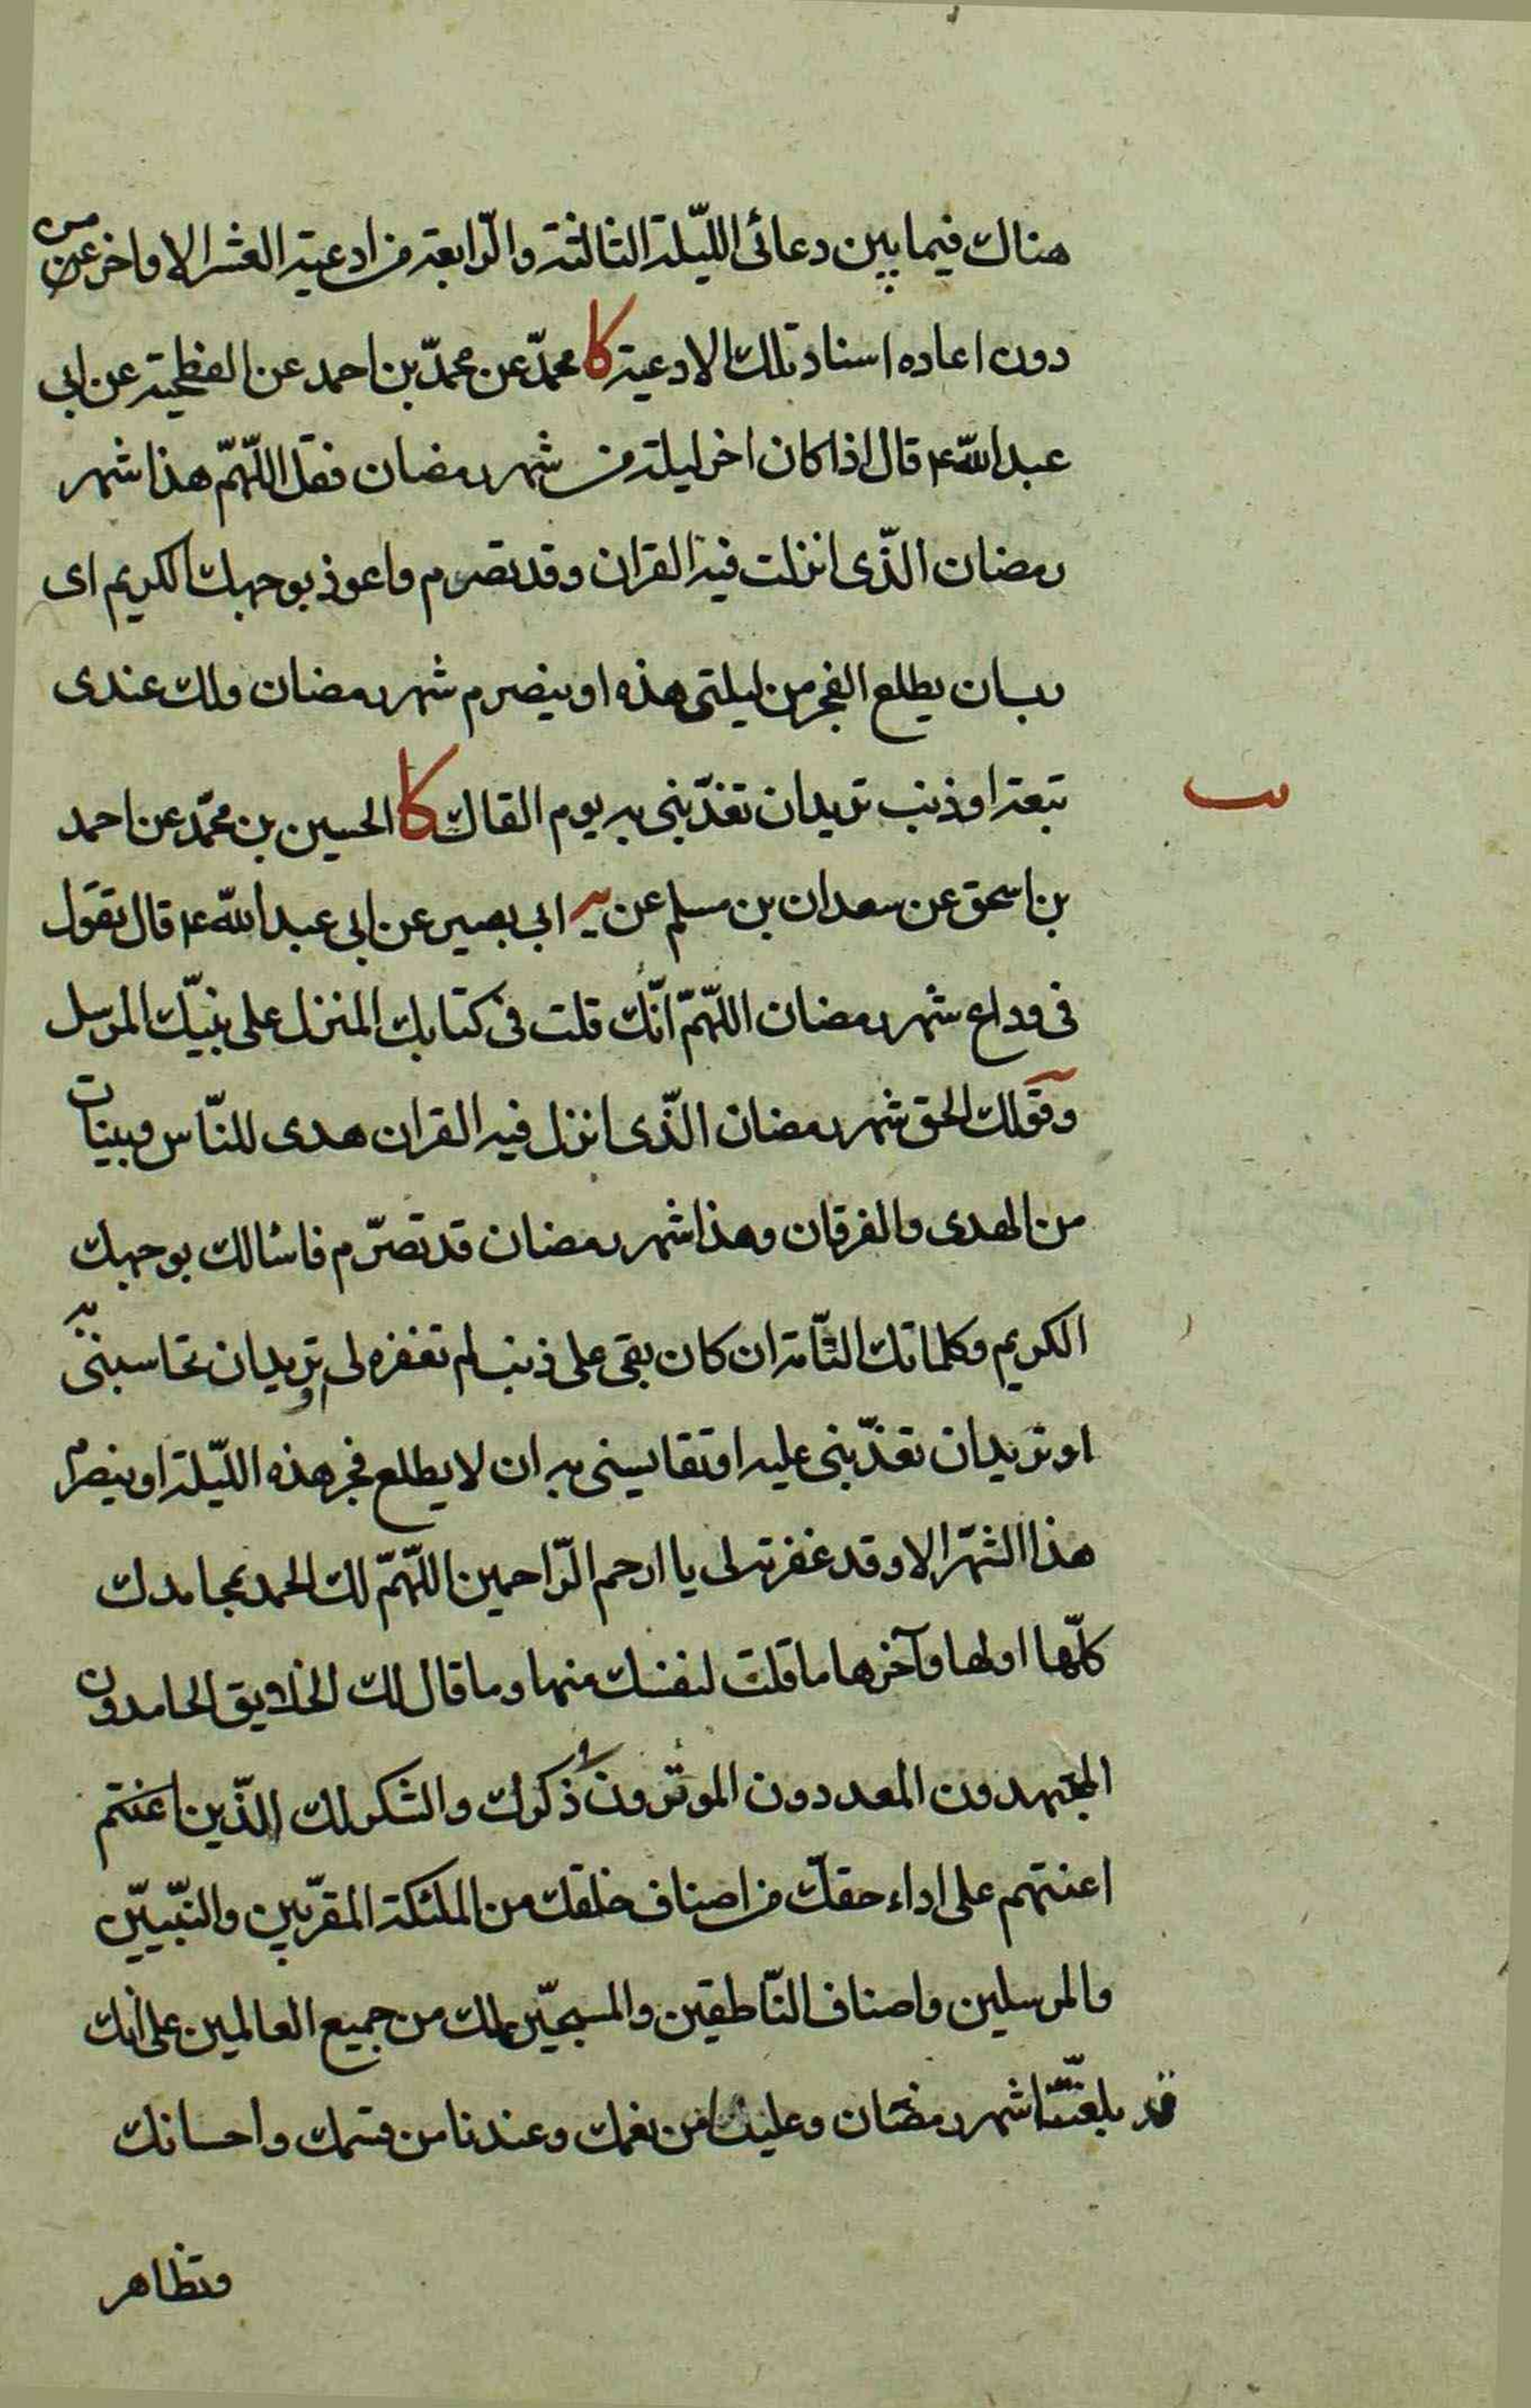 هناك فيما بين دعائى الليّلة الثالثة والرّابعة من ادعية العشر الاواخر من
دون اعاده اسناد تلك الادعية كا محمّد عن محمّد بن احمد عن الفطحية عن ابى
عبد اللّه ع قال اذا كان اخر ليلة من شهر رمضان فقل اللّهمّ هذا شهر
رمضان الذّى انزلت فيه القران وقد تصرم واعوذ بوجهك الكريم اى
رب ان يطلع الفجر من ليلتى هذه او ينصرم شهر رمضان ولك عندى
ب
تبعة او ذنب تريد ان تعذّبنى به يوم القاك كا الحسين بن محمّد عن احمد
بن اسحق عن سعدان بن مسلم عن يه ابى بصير عن ابى عبد اللّه ع قال تقول
فى وداع شهر رمضان اللّهمّ انّك قلت فى كتابك المنزل على نبيّك المرسل
وقولك الحق شهر رمضان الذّى انزل فيه القران هدى للنّاس وبينات
من الهدى والفرقان وهذا شهر رمضان قد تصرّم فاسئالك بوجهك
الكريم وكلماتك التّامة ان كان بقى على ذنب لم تغفره لى وتريد ان تحاسبنى به
او تريد ان تعذّبنى عليه او تقايسنى به ان لا يطلع فجر هذه الليّلة او ينصرم
هذا الشّهر الا وقد غفرته لى يا ارحم الرّاحمين اللّهمّ لك الحمد بمحامدك
كلّها اولها وآخرها ما قلت لنفسك منها وما قال لك الخلايق الحامدون
المجتهدون المعددون الموثرون و ذكرك والشكر لك الذّين اعنتم
اعنتهم على اداء حقك من اصناف خلقك من الملئكة المقرّبين والنّبييّن
والمرسلين واصناف النّاطقين والمسبحيّن لك من جميع العالمين على انك
قد بلغّتنا شهر رمضان وعلينا من نعمك وعندنا من قسمك واحسانك
وتظاهر